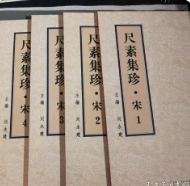 尺素集珍·宋4
主编
尺素集珍·宋3
主编
尺素集珍·宋2
主编
尺素集珍·宋1
主编